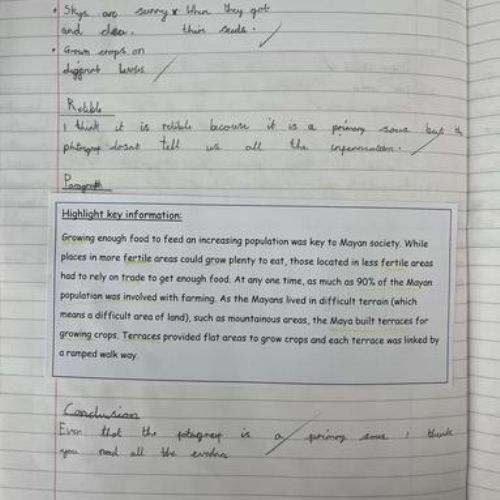 • Skys are sunny x When they got
and clea. thier seeds.
• Grown crops on
diggrent levels
Relible
I think it is relible because it is a primary sous but th
photograp dosnt tell us all the infermation.
Paragraph
Highlight key information:
Growing enough food to feed an increasing population was key to Mayan society. While
places in more fertile areas could grow plenty to eat, those located in less fertile areas
had to rely on trade to get enough food. At any one time, as much as 90% of the Mayan
population was involved with farming. As the Mayans lived in difficult terrain (which
means a difficult area of land), such as mountainous areas, the Maya built terraces for
growing crops. Terraces provided flat areas to grow crops and each terrace was linked by
a ramped walk way
Conclusion
Even that the is a primary sous I think
you need all the